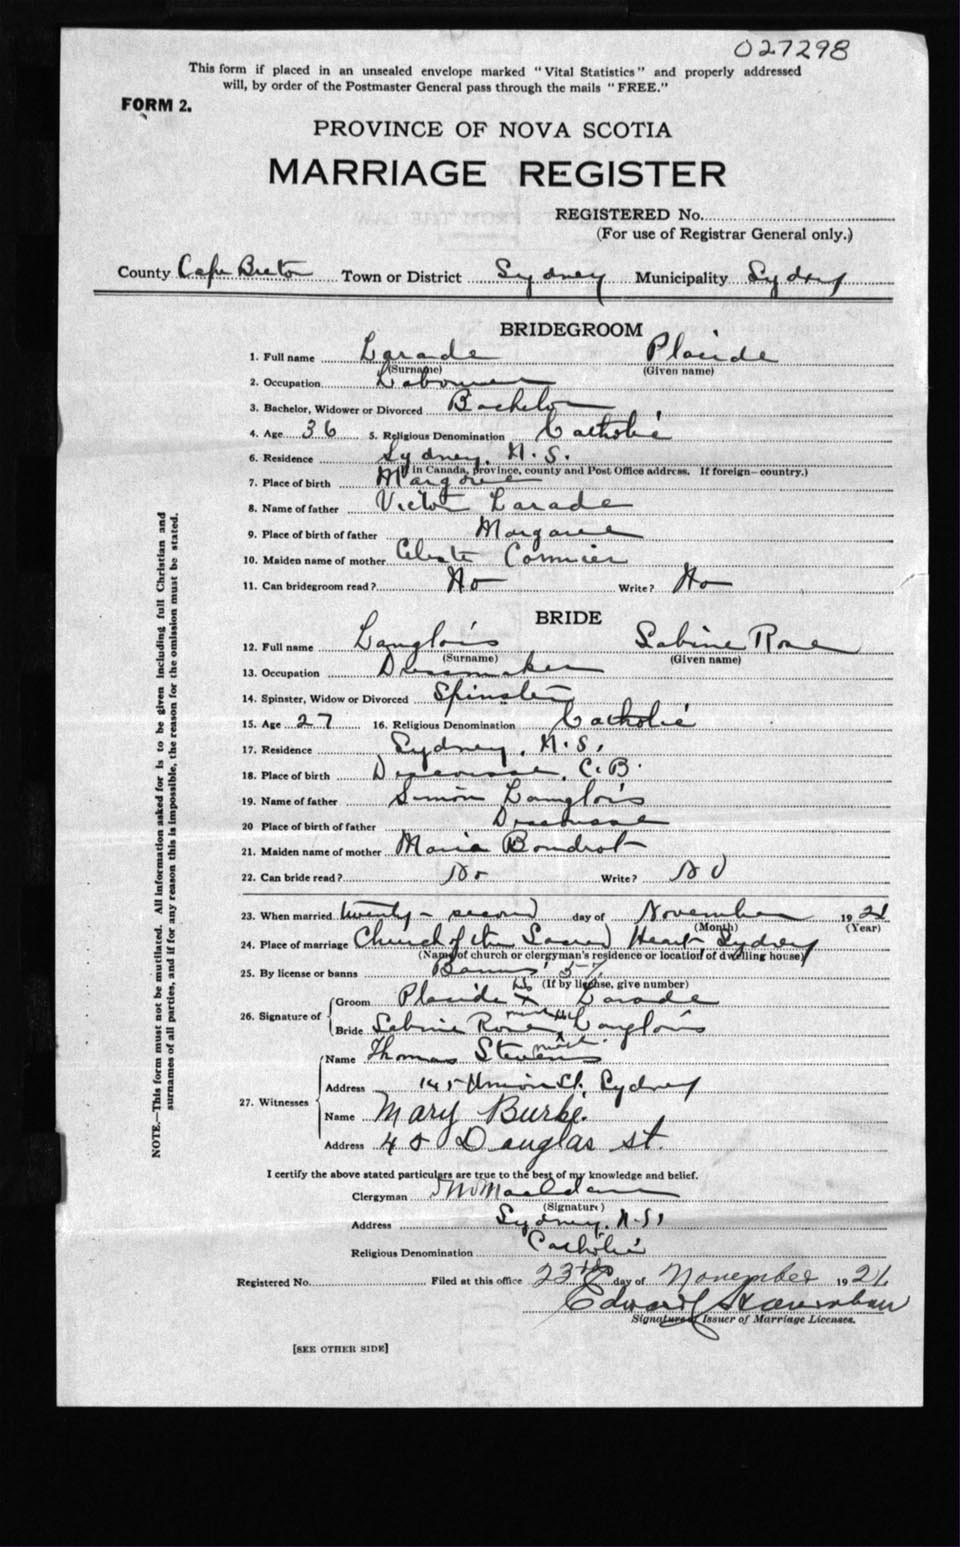 027298
This form if placed in an unsealed envelope marked "Vital Statistics" and properly addressed
will, by order of the Postmaster General pass through the mails "FREE."
FORM 2.
PROVINCE OF NOVA SCOTIA
MARRIAGE REGISTER
REGISTERED No.
(For use of Registrar General only.)
County Cape Breton Town or District Sydney Municipality Sydney
BRIDEGROOM
1. Full name Larade Placide
(Surname) (Given name)
2. Occupation Labourer
3. Bachelor, Widower or Divorced Bachelor
4. Age 36 5. Religious Denomination Catholic
6. Residence Sydney, N.S.
(If in Canada, province, county and Post Office address. If foreign—country.)
7. Place of birth Margaree
8. Name of father Victor Larade
9. Place of birth of father Margaree
10. Maiden name of mother Celeste Cormier
11. Can bridegroom read? No Write? No
BRIDE
12. Full name Langlois Sabine Rose
(Surname) (Given name)
13. Occupation Dressmaker
14. Spinster, Widow or Divorced Spinster
15. Age 27 16. Religious Denomination Catholic
17. Residence Sydney, N.S.
18. Place of birth Descousse, C.B.
19. Name of father Simon Langlois
20 Place of birth of father Descousse
21. Maiden name of mother Maria Boudrot
22. Can bride read? No Write? No
23. When married twenty-second day of November 1921
(Month) (Year)
24. Place of marriage Church of the Sacred Heart, Sydney
(Name of church or clergyman's residence or location of dwelling house)
25. By license or banns Banns
(If by license, give number)
26. Signature of
Groom Placide his X mark Larade
Bride Sabine Rose her X mark Langlois
27. Witnesses
Name Thomas Stevens
Address 145 Union St. Sydney
Name Mary Burke.
Address 45 Douglas st.
I certify the above stated particulars are true to the best of my knowledge and belief.
Clergyman
(Signature)
Address Sydney, N.S.
Religious Denomination Catholic
Registered No. Filed at this office 23rd day of November 1921
Edward
Signature of Issuer of Marriage Licenses.
[SEE OTHER SIDE]
NOTE.—This form must not be mutilated. All information asked for is to be given including full Christian and
surnames of all parties, and if for any reason this is impossible, the reason for the omission must be stated.